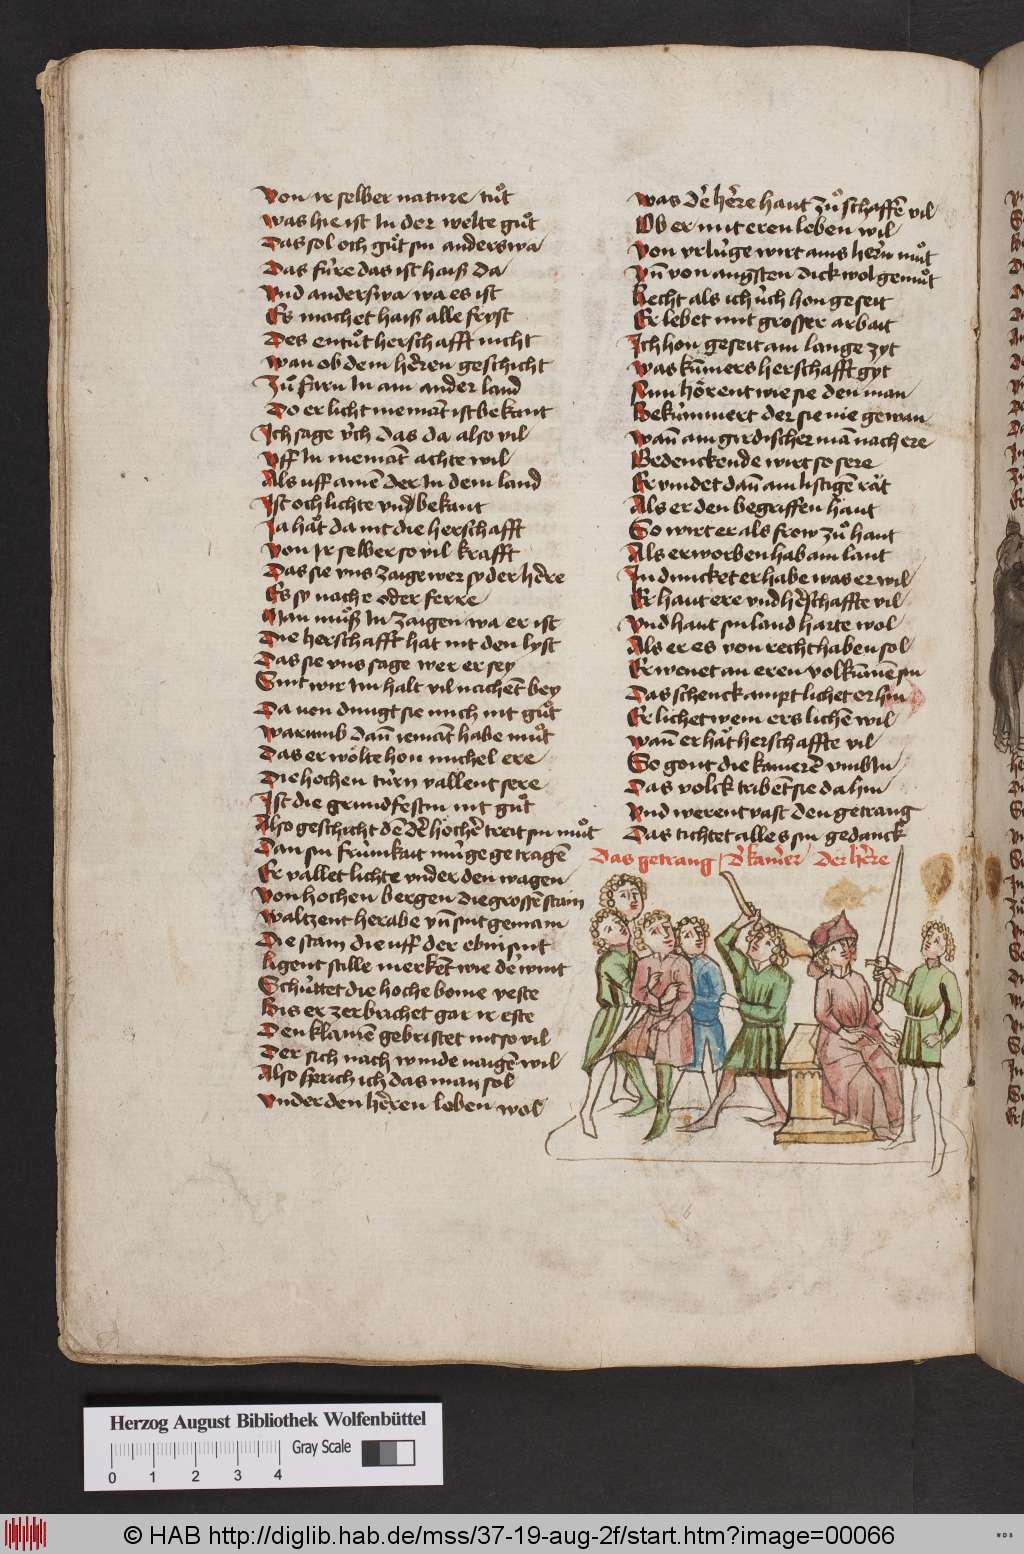 Von ir selber nature tuͦt
Was hie ist In der welte guͦt
Das sol och guͦt sin anderswa
Das fúre das ist haiß da
Vnd anderswa wa es ist
Es machet haiß alle fryst
Des entuͦt herschafft nicht
Wan ob dem herren geschicht
Zuͦ farn In ain ander land
Do er licht nieman̄t ist bekant
Ich sage úch das da also vil
Vff In nieman̄t achte wil
Als uff ainē der In dem land
Ist och lichte vnd bekant
Ja haͮt da nit die herschafft
Von Ir selber so vil krafft
Das sie vns zaige wer sy der hēre
Es sy nache oder ferre
Man muͦß In zaigen wa er ist
Die herschafft hat nit den lyst
Das sie vns sage wer er sey
Sint wir Im halt vil nachent bey
Da uon dungt sie mich nit guͦt
Warumb dan̄ ieman̄t habe muͦt
Das er wölte hon michel ere
Die hochen túrn vallent sere
Ist die grundfestin nit guͦt
Also geschicht dē der hocher̄ treit sin muͦt
Dan sin frúmkait múge getragē
Er vallet lichte vnder den wagen
Von hochen bergen die grossē stain
Waltzent herabe vn̄ sint gemain
Die stain die uff der ebni sint
Ligent stille merkēt wie der wint
Schúttet die hoche bome veste
Bis er zerbrichet gar ir este
Den klainē gebristet nit so vil
Der sich nach winde naigē wil
Also sprich ich das man sol
Vnder den herren leben wol
Was der hēre haut zuͦ schaffē vil
Ob er mit eren leben wil
Von vrlúge wirt ains hern muͦt
Vn̄ von angsten dick wol gemuͦt
Recht als ich úch hon geseit
Er lebet mit grosser arbait
Ich hon geseit ain lange zyt
Was kumers herschafft gyt
Nun hörent wie sie den man
Bekúmmert der sie nie gewan
Wan̄ ain girdischer man nach ere
Bedenckende wirt so sere
Er vindet dan̄ ain listigē raͮt
Als er den begriffen haͮnt
So wirt er als frow zuͦ hant
Als erworben hab ain lant
In duncket er habe was er wil
Er haut ere vnd herschaffte vil
Vnd haut sin land harte wol
Als er es von recht haben sol
Er wenet an eren volkumē sin
Das schenck ampt lichet er hin
Er lichet wem ers lichē wil
Wan̄ er haͮt herschaffte vil
So gont die kamerē vmb In
Das volck tribēt sie da hin
Vnd werent vast den getrang
Das tichtet alles sin gedanck
Das getrang / d' kamer̄ der hēre
Herzog August Bibliothek Wolfenbüttel
Gray Scale
0 1 2 3 4
© HAB http://diglib.hab.de/mss/37-19-aug-2f/start.htm?image=00066
WDB